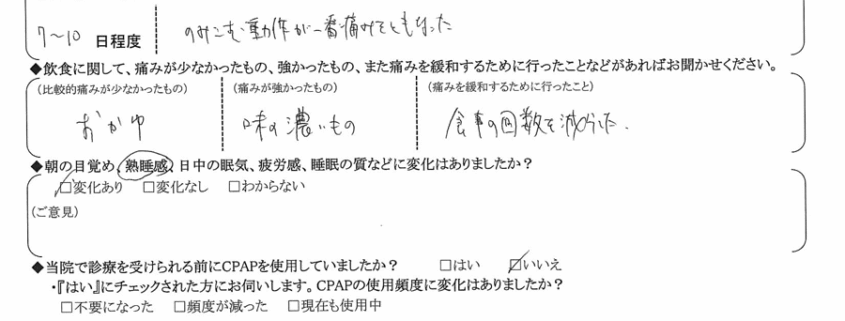 7〜10 日程度 のみこむ動作が一番痛みをともなった
◆飲食に関して、痛みが少なかったもの、強かったもの、また痛みを緩和するために行ったことなどがあればお聞かせください。
(比較的痛みが少なかったもの) (痛みが強かったもの) (痛みを緩和するために行ったこと)
おかゆ 味の濃いもの 食事の回数を減らした.
◆朝の目覚め、熟睡感、日中の眠気、疲労感、睡眠の質などに変化はありましたか?
☑変化あり □変化なし □わからない
(ご意見)
◆当院で診療を受けられる前にCPAPを使用していましたか? □はい ☑いいえ
・『はい』にチェックされた方にお伺いします。CPAPの使用頻度に変化はありましたか?
□不要になった □頻度が減った □現在も使用中